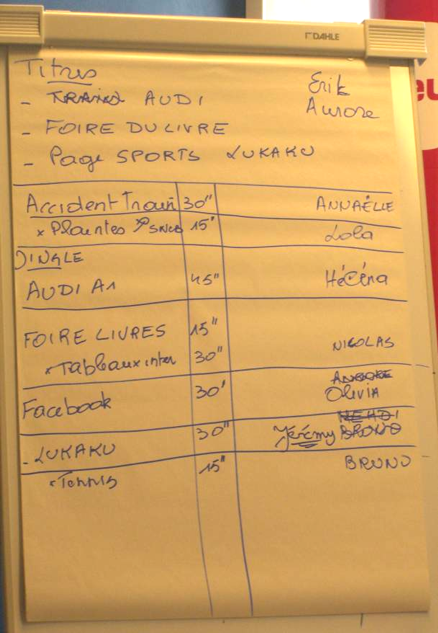 DAHLE
Titres Erik
- TRAIN AUDI Aurore
- FOIRE DU LIVRE
- Page SPORTS LUKAKU
Accident Train 30" ANNAËLLE
* Plaintes SNCB 15" Lola
JINGLE
AUDI A1 45" Héléna
FOIRE LIVRES 15"
* Tableaux inter 30" NICOLAS
Facebook 30' AURORE Olivia
MEHDI
- LUKAKU 30" Jérémy BRUNO
* Tennis 15" BRUNO
eu